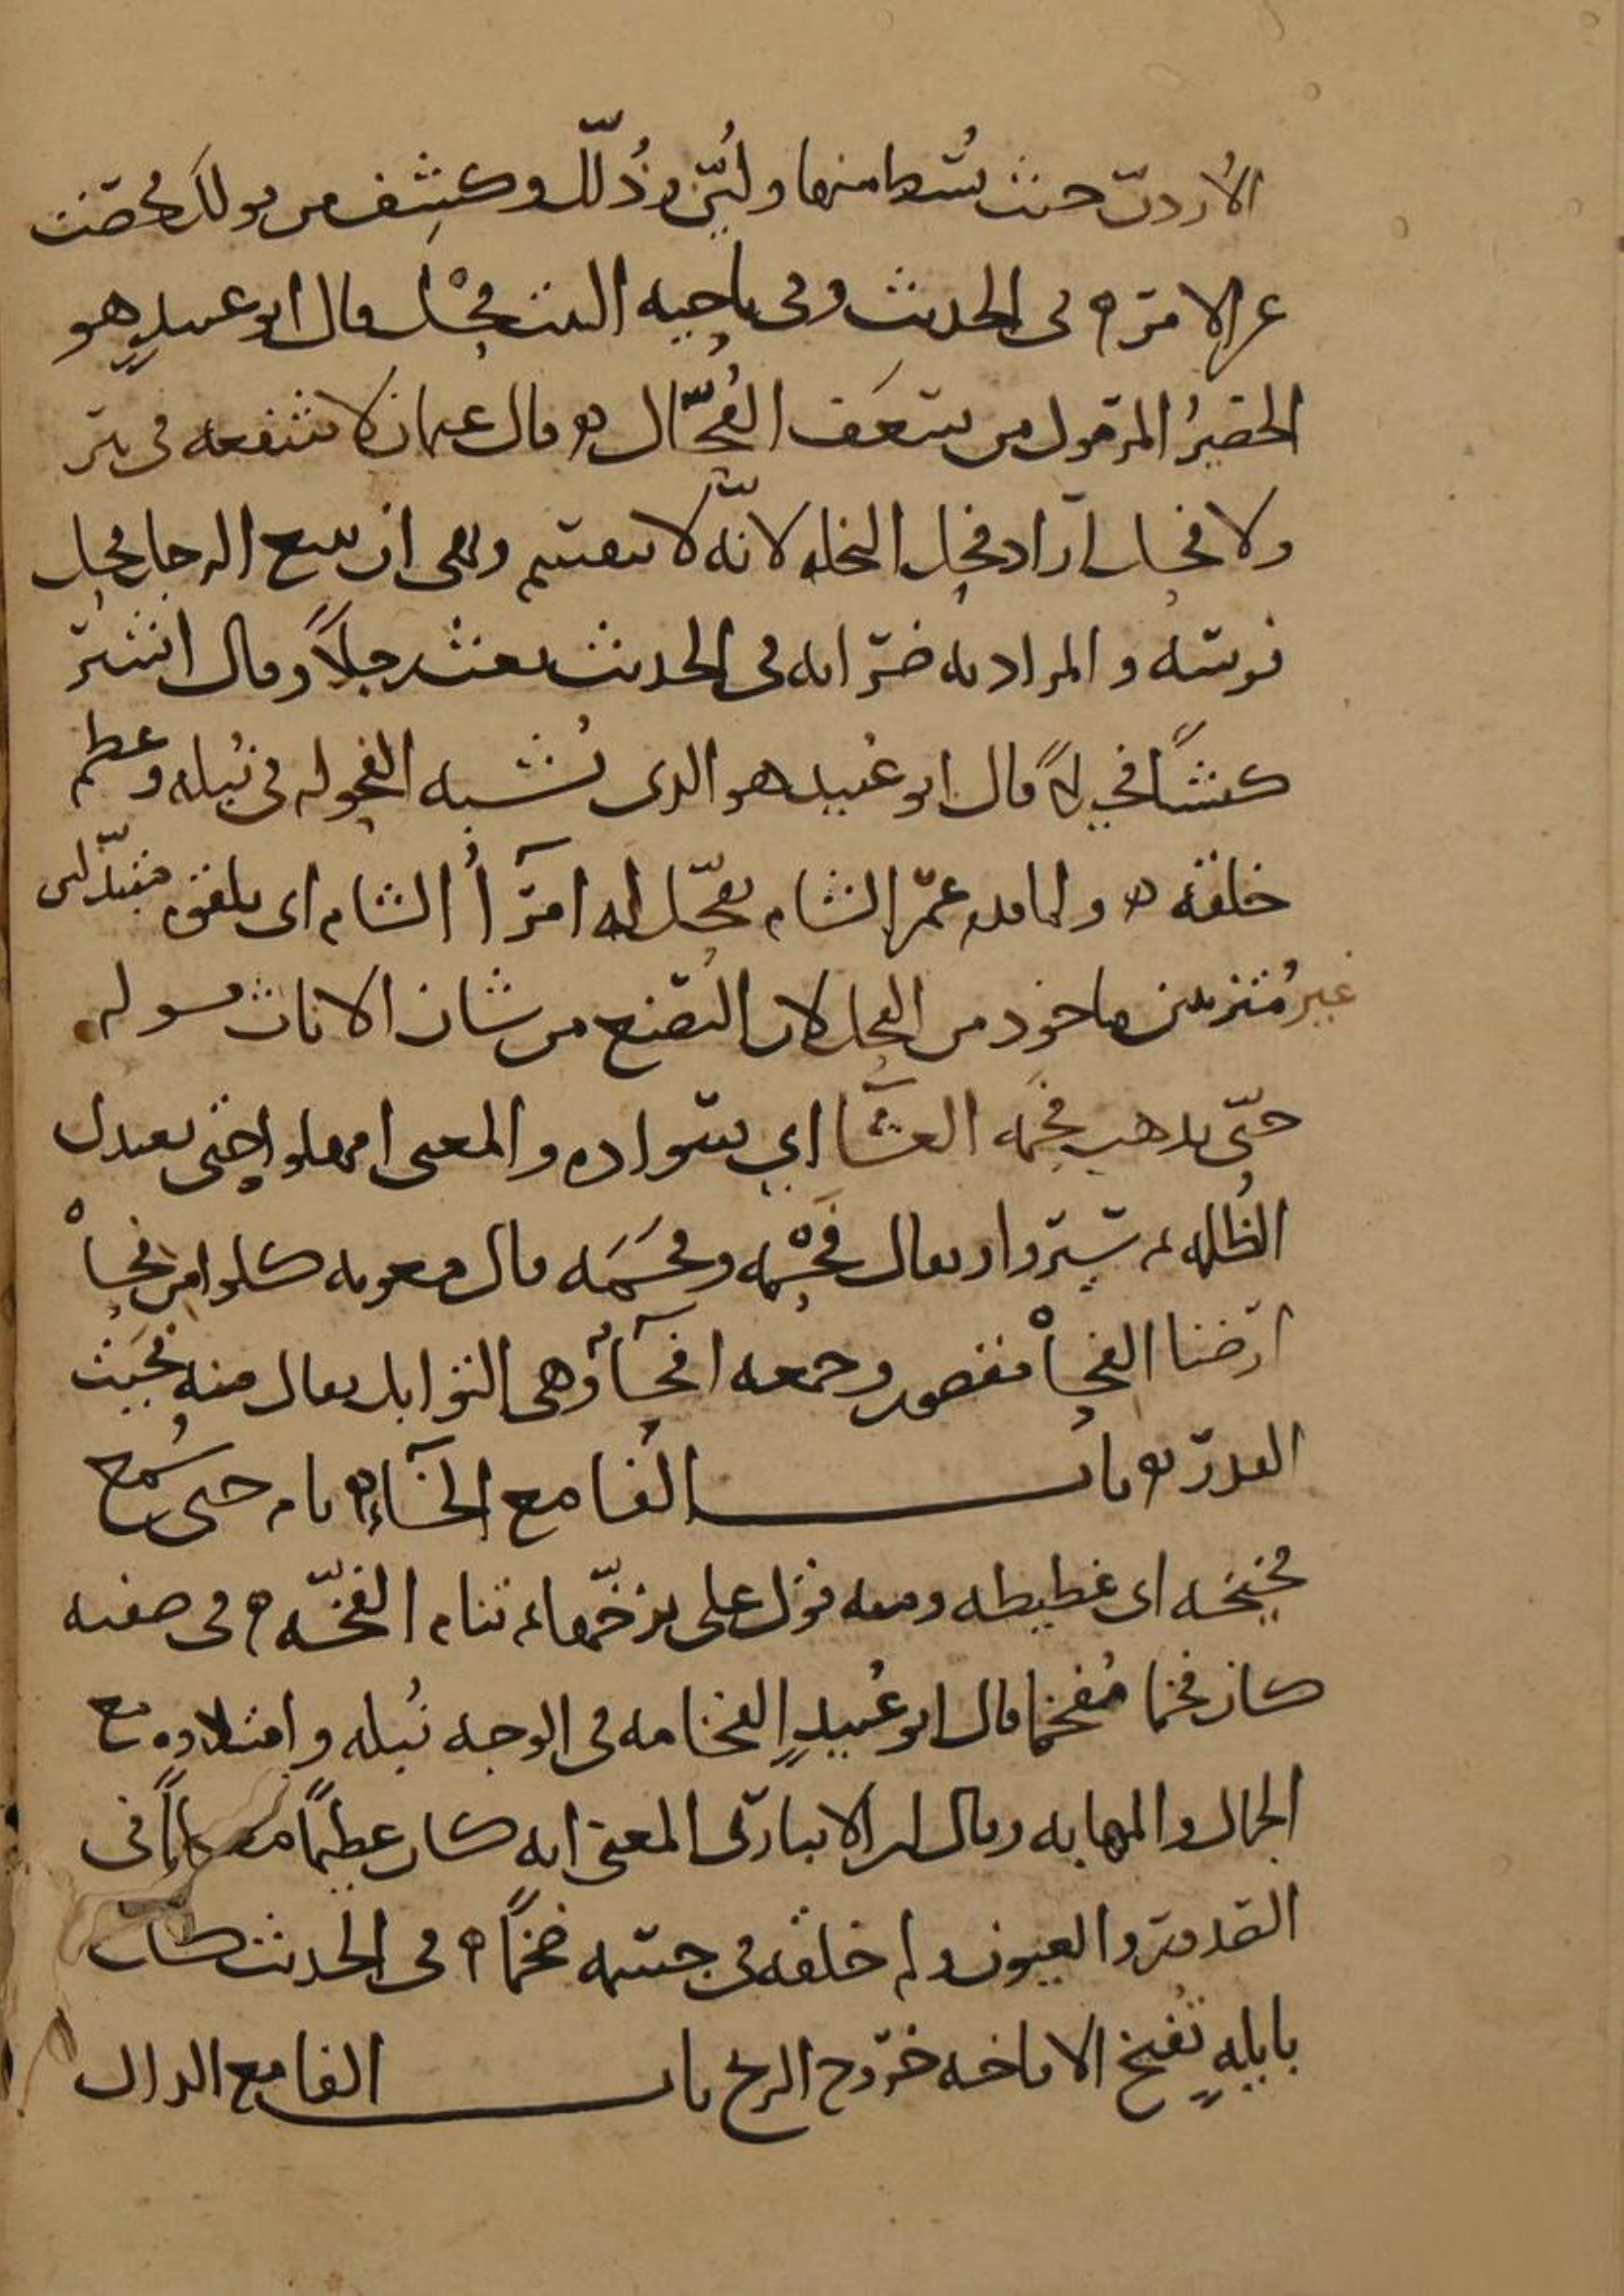 الأردن حيث بسط منها وليّن وذُلّل وكشف من قولك فحصت
عن الامر ه في الحديث وفي ناحية البيت فحل قال ابو عبيد هو
الحصيرُ المرمول من سعف الفُحّال ه وقال عثمان لا شفعه في بير
ولا فحل اراد فحل النخله لانّه لا يقسم ونهى ان يبيع الرجل فحل
فرسه والمراد به ضرابه في الحديث بعث رجلاً وقال اشتر
كبشًا فحيلاً قال ابو عُبيد هو الذي يُشبه الفحوله في نُبله وعظم
خلقه ه ولما قدم عمر الشام تفحّل له امرآأُ الشام اي تلقوه متبذّلين
غير مُتزينين ماخوذ من الفحل لان التصنع من شان الاناث قوله
حتى تذهب فحمه العشآ اي سواده والمعنى امهلوا حتى تعتدل
الظُلمه ثم سيروا ويقال فَحْمه وفحَمَه قال معويه كلوا من فحا
ارضنا الفحا مقصور وجمعه افحآءُ وهي التوابل يقال منه فحَيت
القدر ه باب الفا مع الخآء ه نام حتى سُمع
فخيخه اي غطيطه ومنه قول علي يزخّها ثم تنام الفخّه ه في صفته
كان فخما مُفخما قال ابو عُبيدٍ الفخامه في الوجه نُبله وامتلاوه مع
الجمال والمهابه وقال ابن الانباري المعنى انه كان عظيمًا معظمًا في
الصدور والعيون ولم خلقه في جسمه ضخمًا ه في الحديث كل
بايلهٍ تُفيخ الافاخه خروج الريح باب الفا مع الدال